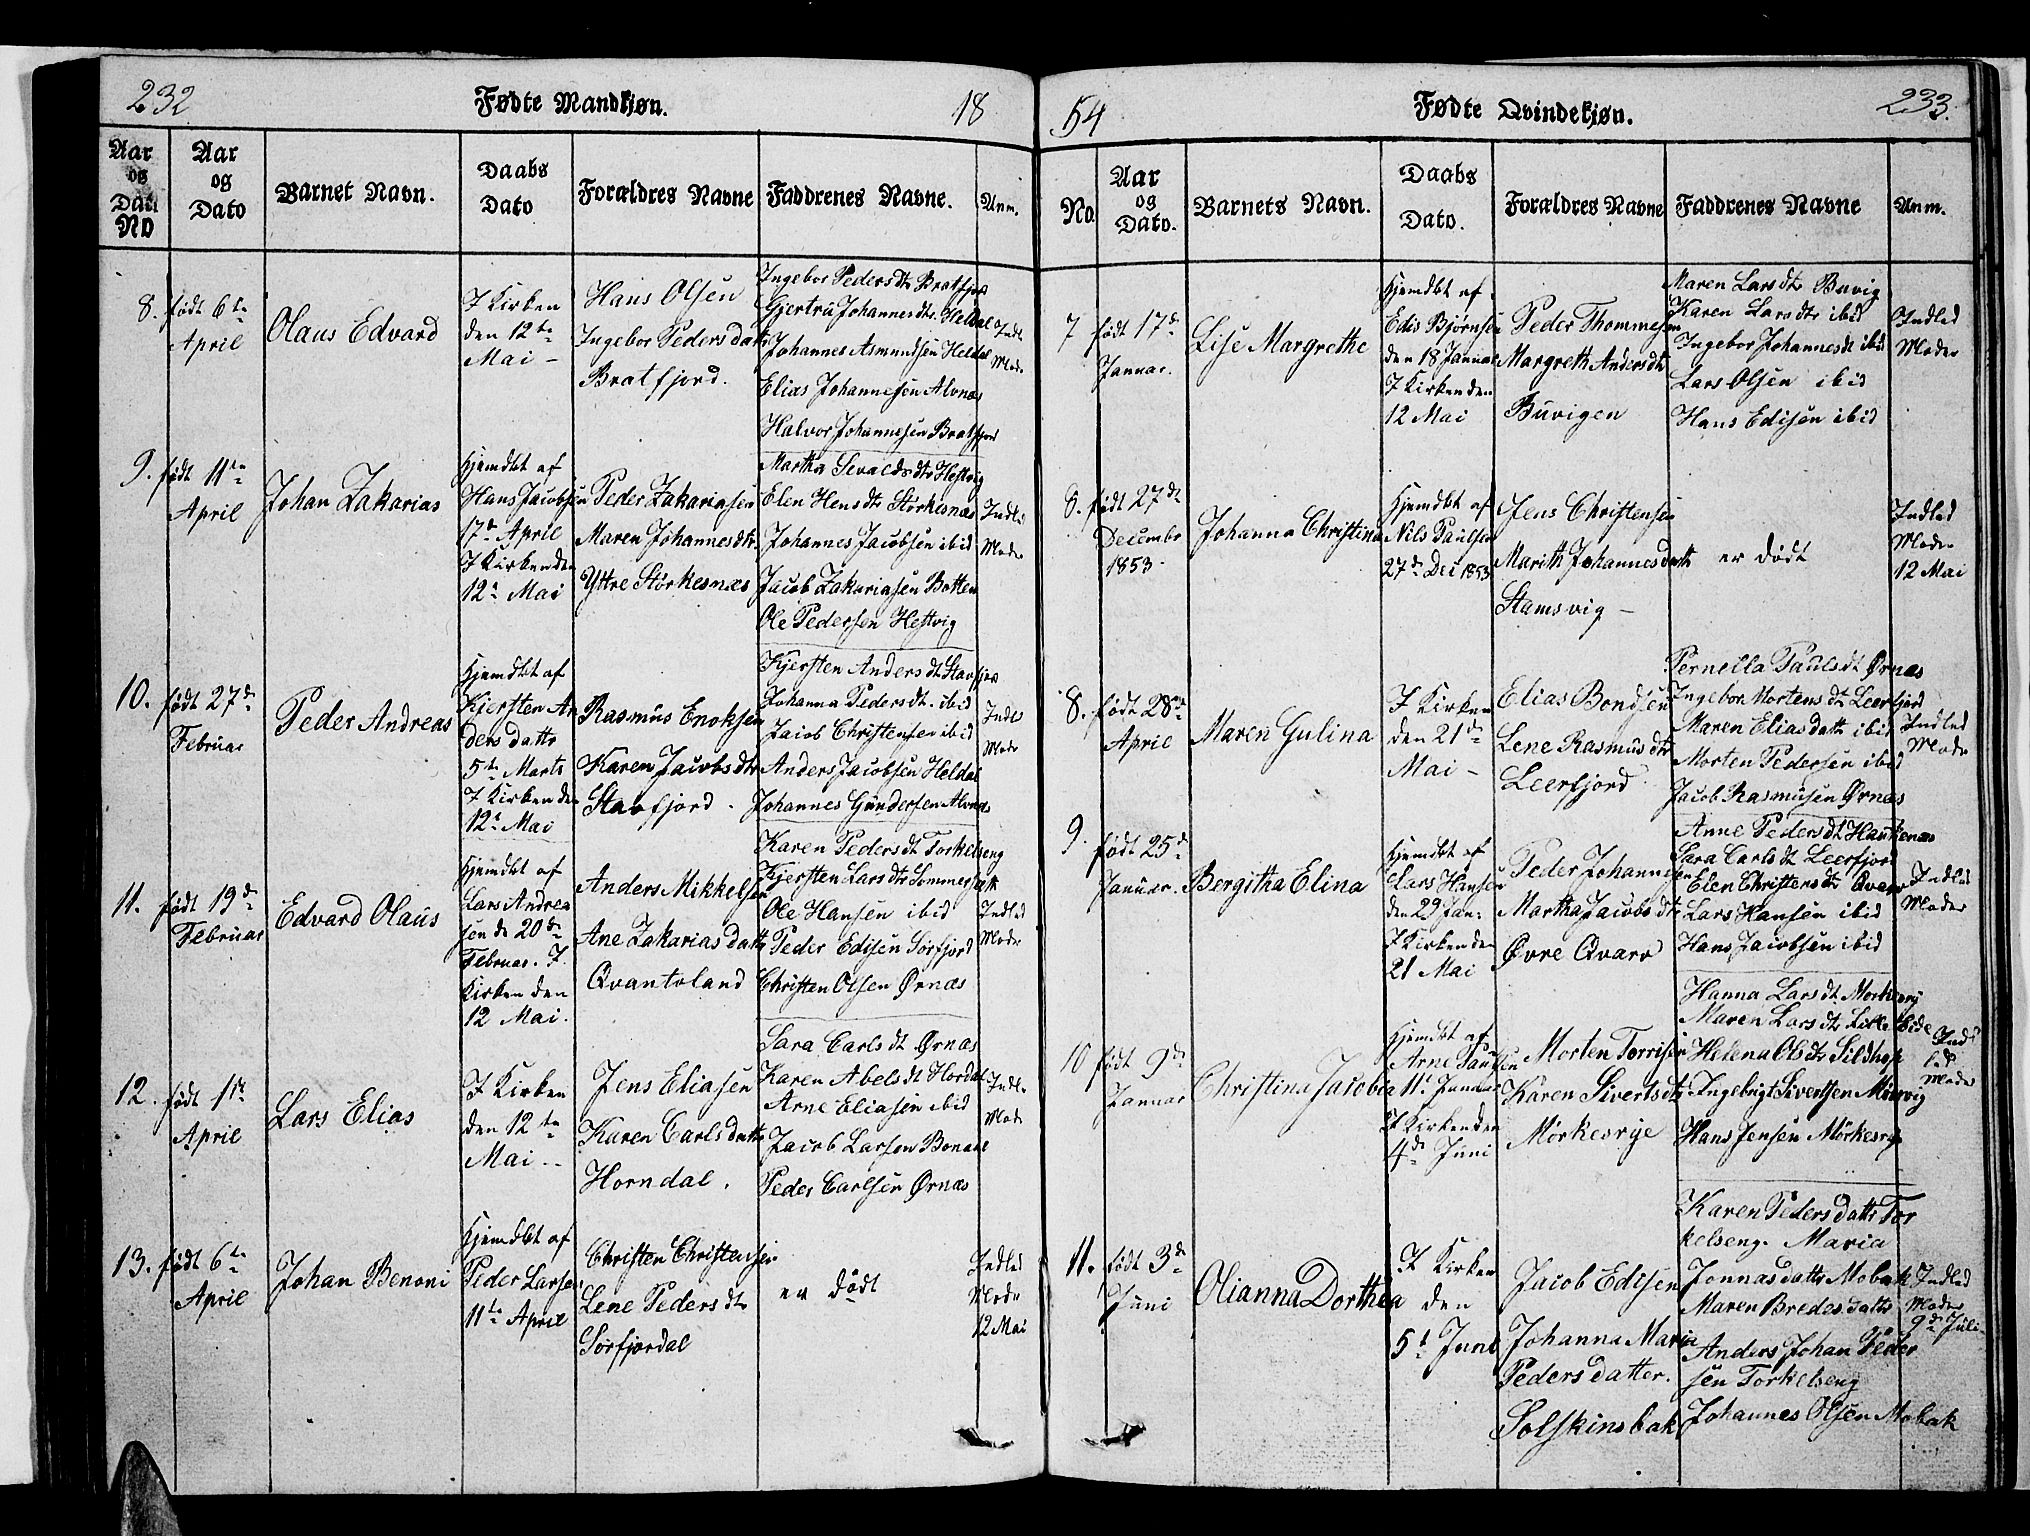 232
Fødte Mandkjøn.
18
Aar og Dato No
Aar og Dato
Barnet Navn.
Daabs Dato
Forældres Navne
Faddrenes Navne.
Anm.
8.
født 6te
April
Olaus Edvard
I Kirken
den 12te
Mai –
Hans Olsen
Ingebor Pedersdatr
Bratfjord.
Ingebor Pedersdtr Bratfjor
Gjertru Johannesdtr. Heldal
Johannes Asmundsen Heldal
Elias Johannesen Alvnæs
Halvor Johannesen Bratfjord
Indl
Mode
9.
født 11te
April
Johan Zakarias
Hjemdbt af
Hans Jacobsen
17de April
I Kirken den
12te Mai
Peder Zakariasen
Maren Johannesdtr.
Yttre Störkesnæs
Martha Sevaldsdtr Hestvig
Elen Hensdtr Störkesnæs
Johannes Jacobsen ibid
Jacob Zakariasen Botten
Ole Pedersen Hestvig
Indled
Moder
10.
født 27de
Februar
Peder Andreas
Hjemdbt af
Kjersten An
dersdattr
5te Marts
I Kirken den
12te Mai
Rasmus Enoksen
Karen Jacobsdtr
Stavfjord.
Kjersten Andersdt Stavfjor
Johanna Pedersdt. ibid
Jacob Christensen ibid
Anders Jacobsen Heldal
Johannes Gundersen Alvnæs
Indl
Mode
11.
født 19de
Februar
Edvard Olaus
Hjemdbt af
Lars Andrea
sen de 20de
Februar. I
Kirken den
12 Mai.
Anders Mikkelsen
Ane Zakariasdattr
Qvantoland
Karen Pedersdt Torkelseng
Kjersten Larsdtr Sommerset
Ole Hansen ibid
Peder Edisen Sörfjord
Christen Olsen Ørnæs
Indled
Mode
12.
født 1te
April
Lars Elias
I Kirken
den 12te
Mai –
Jens Eliasen
Karen Carlsdattr
Horndal.
Sara Carlsdt Ørnæs
Karen Abelsdt Hordal
Arne Eliasen ibid
Jacob Larsen Bonaae
Peder Carlsen Ørnæs
Indle
Mode
13.
født 6te
April
Johan Benoni
Hjemdbt af
Peder Larsen
11te April
Christen Christensen
Lene Pedersdtr
Sörfjordal
er dödt
Indled
Mode
12 Mai
54
Fødte Qvindekjøn.
233.
No
Aar og Dato.
Barnets Navn.
Daabs Dato.
Forældres Navne
Faddrenes Navne
Anm.
7
født 17de
Januar.
Lise Margrethe
Hjemdbt af
Edis Bjørnsen
den 18 Januar
I Kirken den
12 Mai
Peder Thommesen
Margreth Andersdt
Buvigen
Maren Larsdtr Buvig
Karen Larsdtr ibid
Ingebor Johannesdt ibid
Lars Olsen ibid
Hans Edisen ibid
Indled
Moder
8.
født 27de
Decembr
1853
Johanna Christina
Hjemdbt af
Nils Paulsen
27de Dec 1853
Jens Christensen
Marith Johannesdattr
Stamsvig –
er dödt
Indled
Moder
12 Mai
8.
født 28de
April
Maren Gulina
I Kirken
den 21de
Mai –
Elias Bondsen
Lene Rasmusdtr
Leerfjord
Pernella Paulsdt Ørnæs
Ingebor Mortensdtr Leerfjord
Maren Eliasdattr ibid
Morten Pedersen ibid
Jacob Rasmusen Ørnæs
Indled
Mode
9.
født 25de
Januar.
Bergitha Elina
Hjemdbt af
Lars Hansen
den 29 Jan:
I Kirken den
21 Mai
Peder Johannesen
Martha Jacobsdtr
Øvre Qvarv
Anne Pedersdt Haukenæs
Sara Carlsdt Leerfjord
Elen Christensdtr Qvarv
Lars Hansen ibid
Hans Jacobsen ibid
Indled
Moder
10
født 9de
Januar
Christina Jacobea
Hjemdbt af
Arne Paulsen
11te Januar
I Kirken den
4de Juni
Morten Torrisen
Karen Sivertsdtr
Mörkesrye
Hanna Larsdt Morkesry
Maren Larsdtr Lille Eide
Helena Olsdtr Sildhop
Ingebrigt Sivertsen Mörsvig
Hans Jensen Mörkesry
Ind
led
Moder
11.
født 3de
Juni
Olianna Dorthea
I Kirken
den
5te Juni
Jacob Edisen
Johanna Maria
Pedersdatter.
Solskinsbak
Karen Pedersdattr Tor
kelseng. Maria
Jonnasdattr Mobak
Maren Bredesdattr
Anders Johan Peder
sen Torkelseng
Johannes Olsen Mobak
Indled
Moder
9de Juli